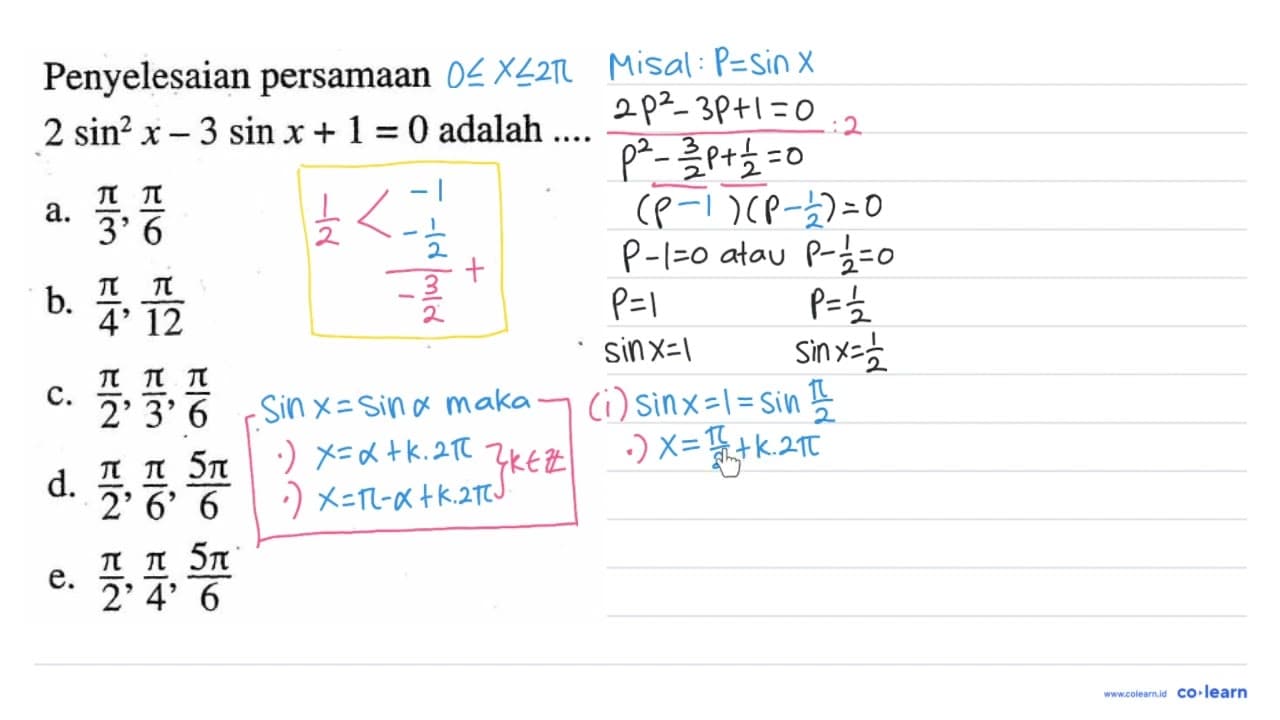 Penyelesaian persamaan 0≤ x ≤2π
2 sin² x – 3 sin x + 1 = 0 adalah ....
a. π/3, π/6
b. π/4, π/12
c. π/2, π/3, π/6
d. π/2, π/6, 5π/6
e. π/2, π/4, 5π/6
1/2 < -1
-1/2
+
-3/2
Sin x = Sin α maka
·) x = α + k. 2π
·) x = π - α + k. 2π
} k ∈ Z
Misal : P = sin x
2p² - 3p + 1 = 0
: 2
p² - 3/2 p + 1/2 = 0
(p - 1 ) (p - 1/2) = 0
P - 1 = 0 atau p - 1/2 = 0
P = 1 P = 1/2
sin x = 1 sin x = 1/2
(i) sin x = 1 = sin π/2
·) x = π/2 + k. 2π
www.colearn.id co·learn